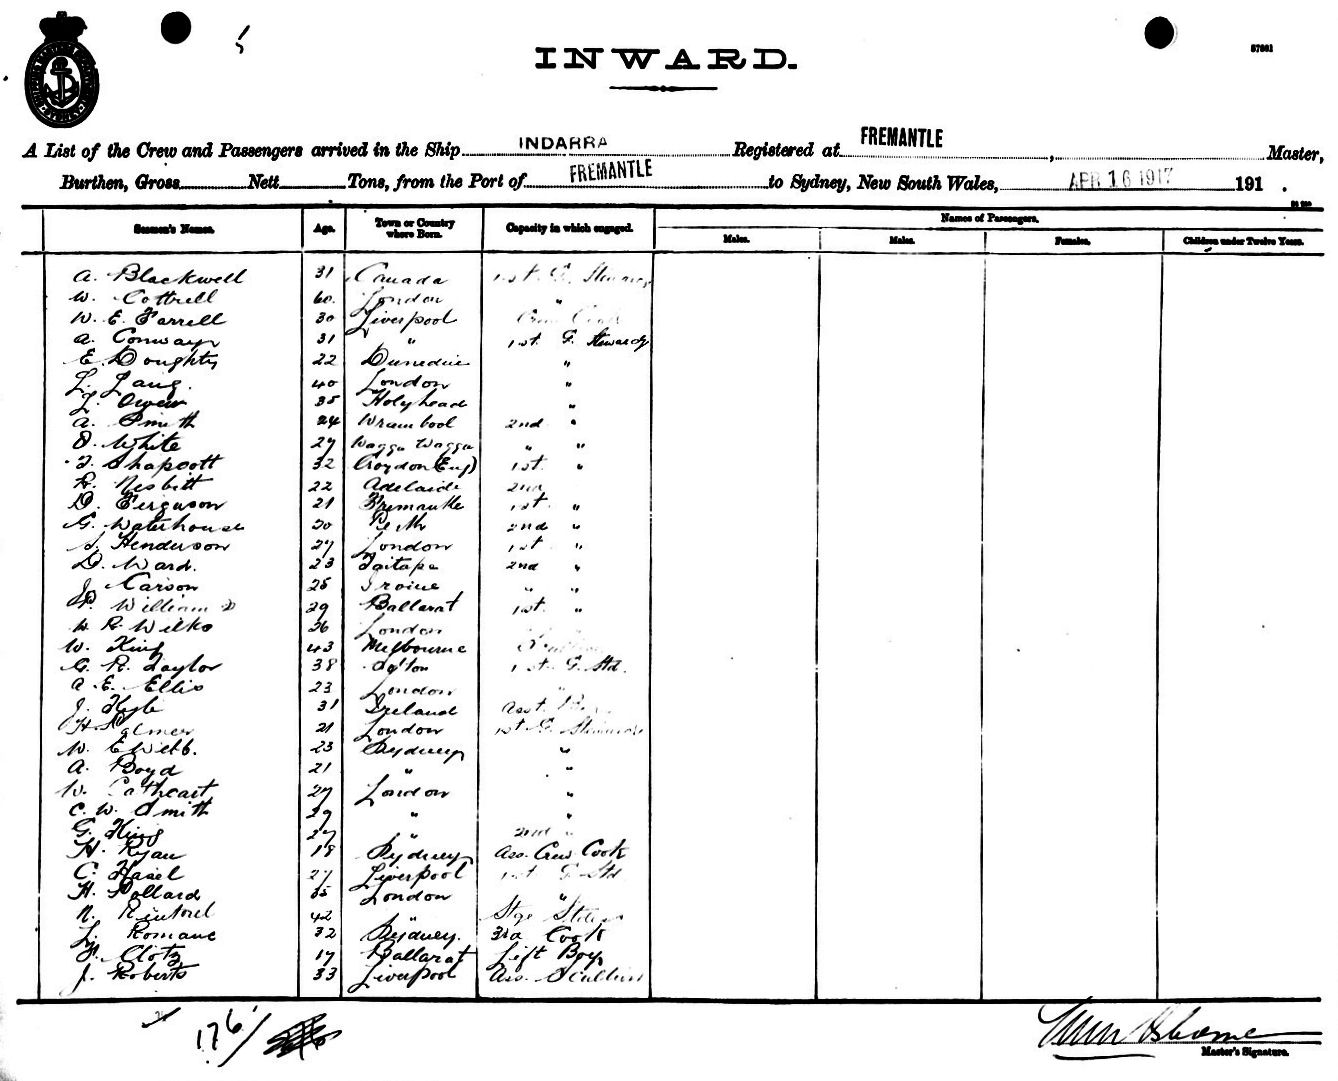 INWARD.
57601
A List of the Crew and Passengers arrived in the Ship INDARRA Registered at FREMANTLE, Master,
Burthen, Gross Nett Tons, from the Port of FREMANTLE to Sydney, New South Wales, APR 16 1917 191 .
Names of Passengers.
Seamen's Names. Age. Town or Country where Born. Capacity in which engaged. Males. Males. Females. Children under Twelve Years.
A. Blackwell 31 Canada 1st. G. Steward
W. Cottrell 60 London "
W. E. Farrell 30 Liverpool Crew Cook
A. Conway 31 " 1st G. Stewards
E. Doughty 22 Dunedin "
L. Lang. 40 London "
L. Owen 35 Holyhead "
A. Smith 24 Wrambool 2nd "
O. White 27 Wagga Wagga " "
T. Shapcott 32 Croydon (Eng) 1st. "
R. Nesbitt 22 Adelaide 2nd
D. Ferguson 21 Fremantle 1st. "
G. Waterhouse 20 Perth 2nd "
S. Henderson 27 London 1st. "
D. Ward. 23 Taitapu 2nd "
J. Carson 25 Irvine " "
P. Williams 29 Ballarat 1st. "
W. R. Wilks 26 London
W. King 43 Melbourne
G. R. Taylor 38 1st G. Std.
A. E. Ellis 23 London "
J. Kyle 31 Ireland Asst.
H. Palmer 21 London 1st G. Stewards
W. E. Webb. 23 Sydney "
A. Boyd 21 " "
W. Cathcart 27 London "
C. W. Smith 29 " "
G. King 27 " 2nd "
H. Ryan 18 Sydney Ass. Crew Cook
C. Hasel 27 Liverpool 1st G. Std
H. Pollard 35 London "
N. Rintoul 42 "
L. Romane 32 Sydney. 3rd Cook
F. Clotz 17 Ballarat Lift Boy
J. Roberts 33 Liverpool Ass. Scullion
176
Master's Signature.